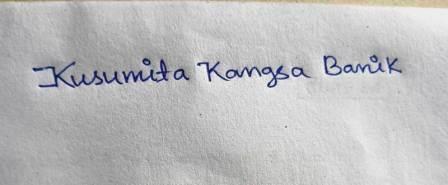 Kusumita Kangsa Banik